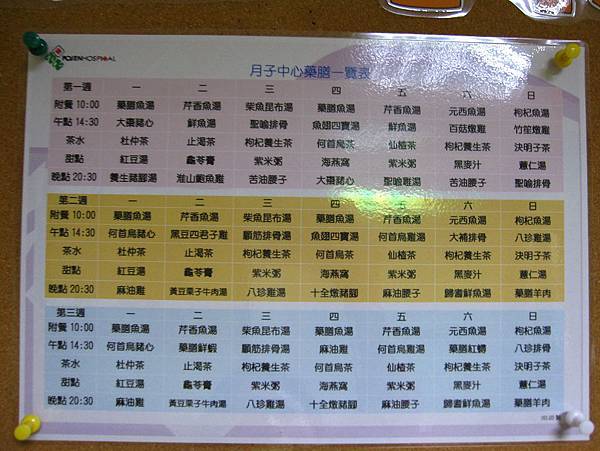 POJENHOSPITAL
月子中心藥膳一覽表
第一週 一 二 三 四 五 六 日
附餐 10:00 藥膳魚湯 芹香魚湯 柴魚昆布湯 藥膳魚湯 芹香魚湯 元西魚湯 枸杞魚湯
午點 14:30 大棗豬心 鮮魚湯 聖喻排骨 魚翅四寶湯 鮮魚湯 百菇燉雞 竹笙燉雞
茶水 杜仲茶 止渴茶 枸杞養生茶 何首烏茶 仙楂茶 枸杞養生茶 決明子茶
甜點 紅豆湯 龜苓膏 紫米粥 海燕窩 紫米粥 黑麥汁 薏仁湯
晚點 20:30 養生豬腳湯 淮山鮑魚雞 苦油腰子 大棗豬心 聖喻雞湯 苦油腰子 聖喻排骨
第二週 一 二 三 四 五 六 日
附餐 10:00 藥膳魚湯 芹香魚湯 柴魚昆布湯 藥膳魚湯 芹香魚湯 元西魚湯 枸杞魚湯
午點 14:30 何首烏豬心 黑豆四君子雞 顧筋排骨湯 魚翅四寶湯 何首烏雞湯 大補排骨 八珍雞湯
茶水 杜仲茶 止渴茶 枸杞養生茶 何首烏茶 仙楂茶 枸杞養生茶 決明子茶
甜點 紅豆湯 龜苓膏 紫米粥 海燕窩 紫米粥 黑麥汁 薏仁湯
晚點 20:30 麻油雞 黃豆栗子牛肉湯 八珍雞湯 十全燉豬腳 麻油腰子 歸耆鮮魚湯 藥膳羊肉
第三週 一 二 三 四 五 六 日
附餐 10:00 藥膳魚湯 芹香魚湯 柴魚昆布湯 藥膳魚湯 芹香魚湯 元西魚湯 枸杞魚湯
午點 14:30 何首烏豬心 藥膳鮮蝦 顧筋排骨湯 麻油雞 何首烏雞湯 藥膳紅蟳 八珍排骨
茶水 杜仲茶 止渴茶 枸杞養生茶 何首烏茶 仙楂茶 枸杞養生茶 決明子茶
甜點 紅豆湯 龜苓膏 紫米粥 海燕窩 紫米粥 黑麥汁 薏仁湯
晚點 20:30 麻油雞 黃豆栗子牛肉湯 八珍雞湯 十全燉豬腳 麻油腰子 歸耆鮮魚湯 藥膳羊肉